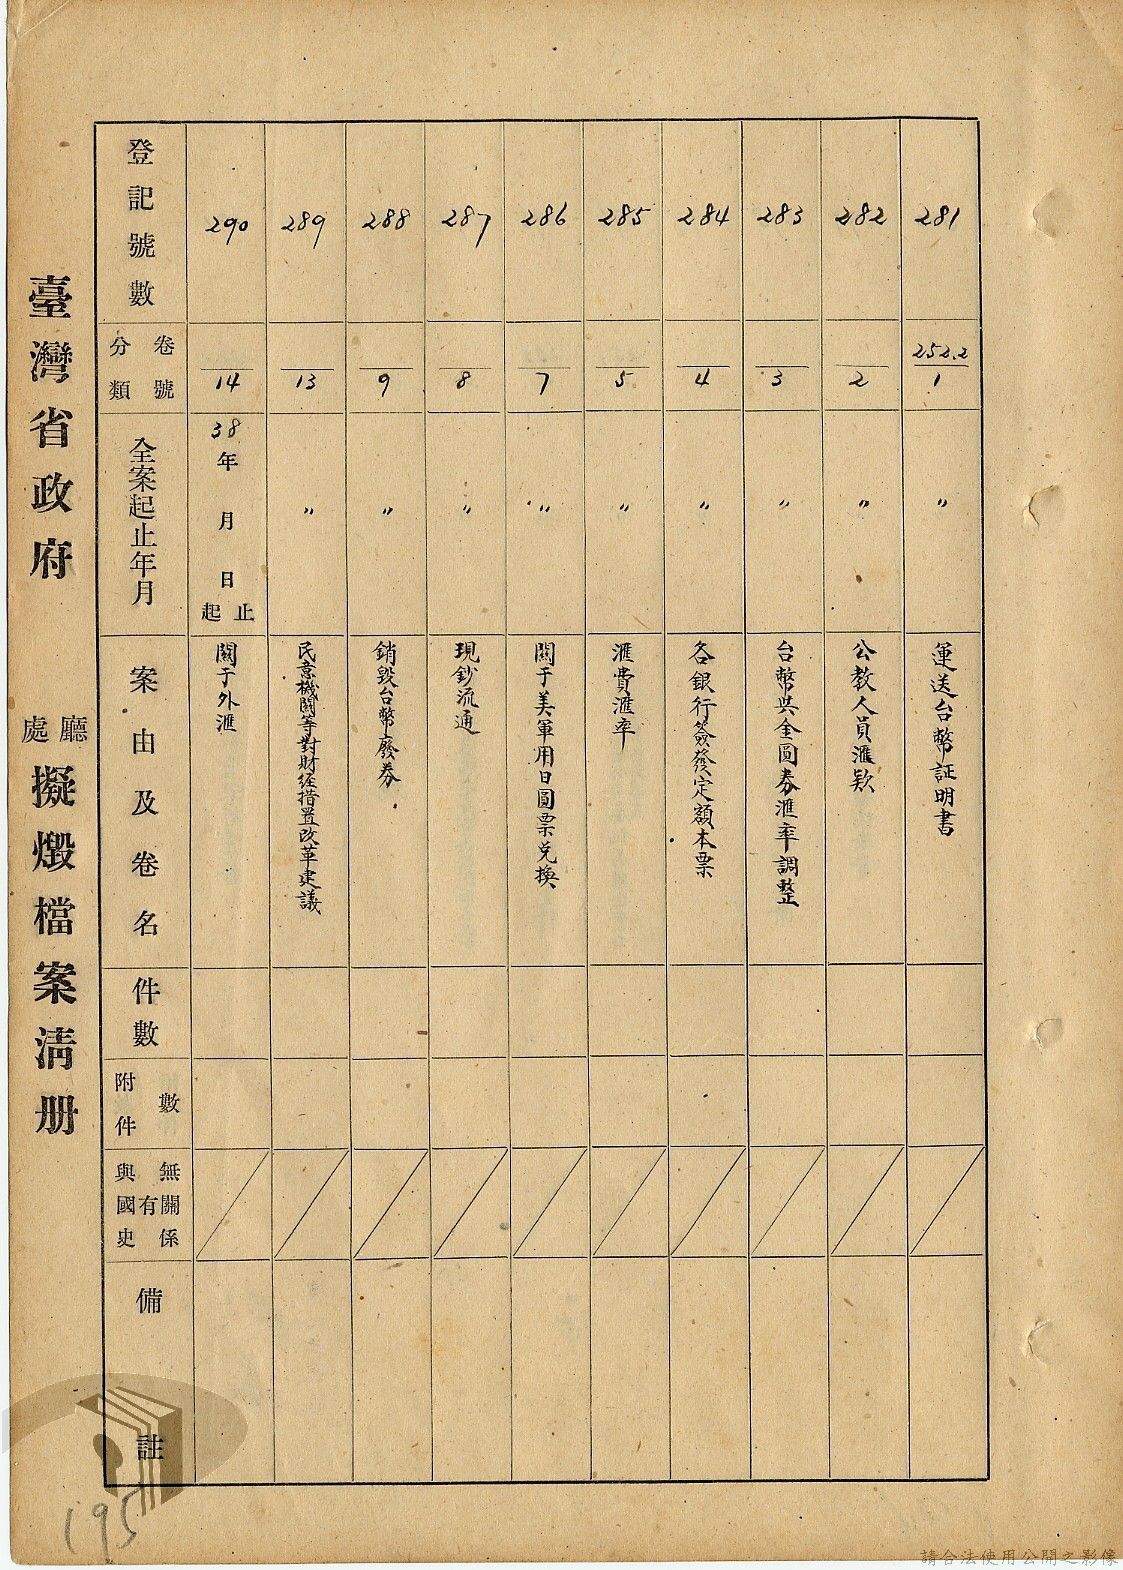 登記號數
分類 卷號
全案起止年月
案由及卷名
件數
附件 數
與國史 有無關係
備註
281
252.2
1
〃
運送台幣証明書
282
2
〃
公教人員滙欵
283
3
〃
台幣與金圓券滙率調整
284
4
〃
各銀行簽發定額本票
285
5
〃
滙費滙率
286
7
〃
關于美軍用日圓票兑換
287
8
〃
現鈔流通
288
9
〃
銷毀台幣廢券
289
13
〃
民意機關等對財經措置改革建議
290
14
38年 月 日 起止
關于外滙
臺灣省政府 廳處 擬燬檔案清册
195
請合法使用公開之影像